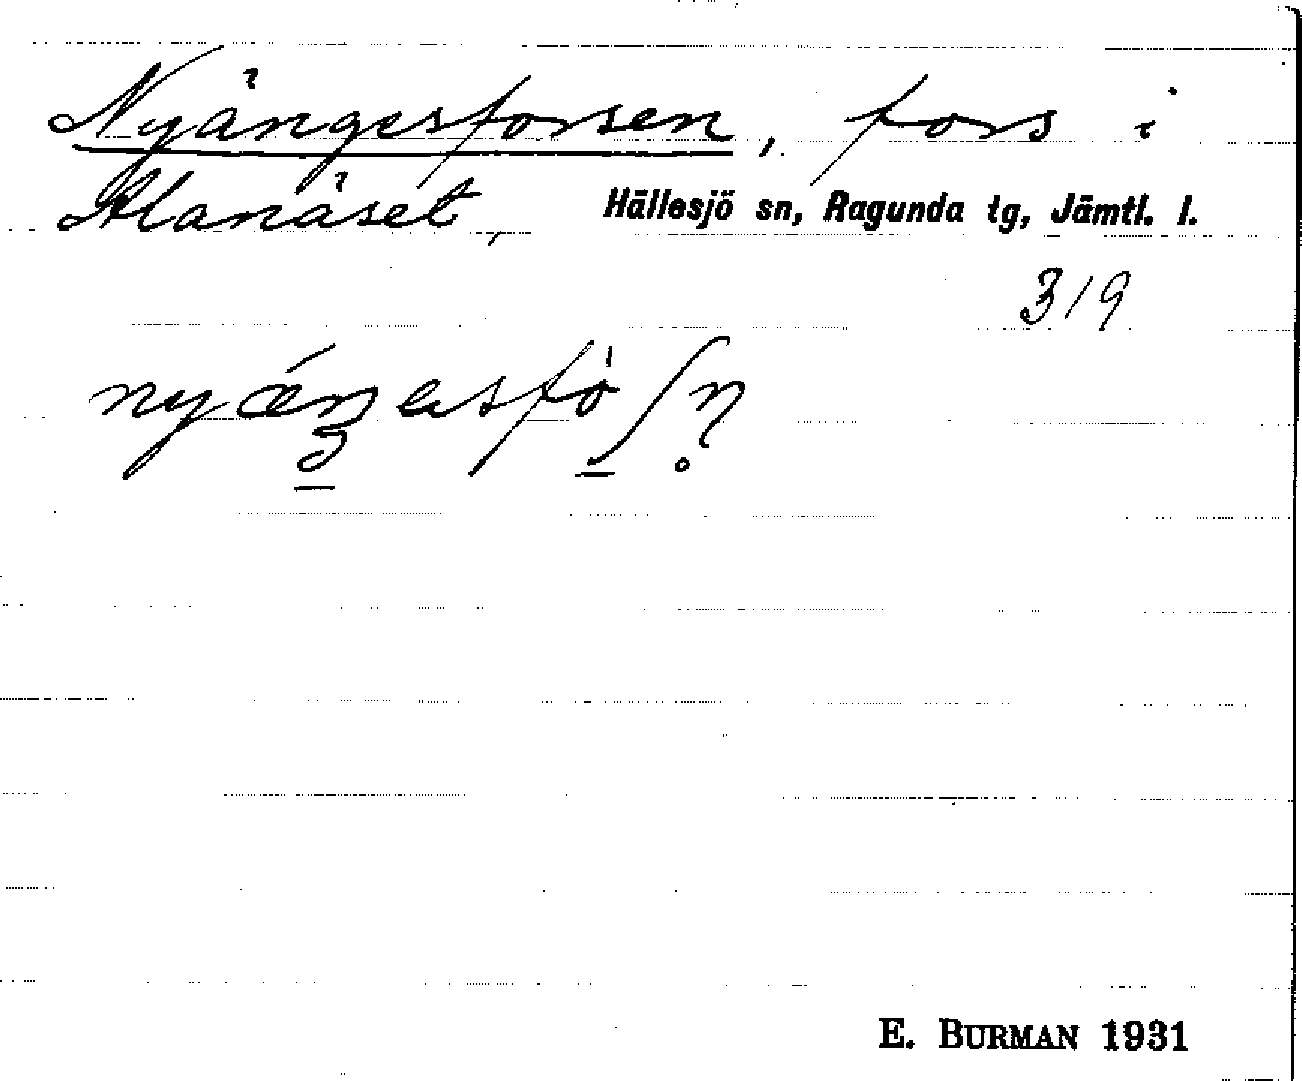 Nyängesforsen, fors i
Alanäset, Hällesjö sn, Ragunda tg, Jämtl. l.
319
E. BURMAN 1931